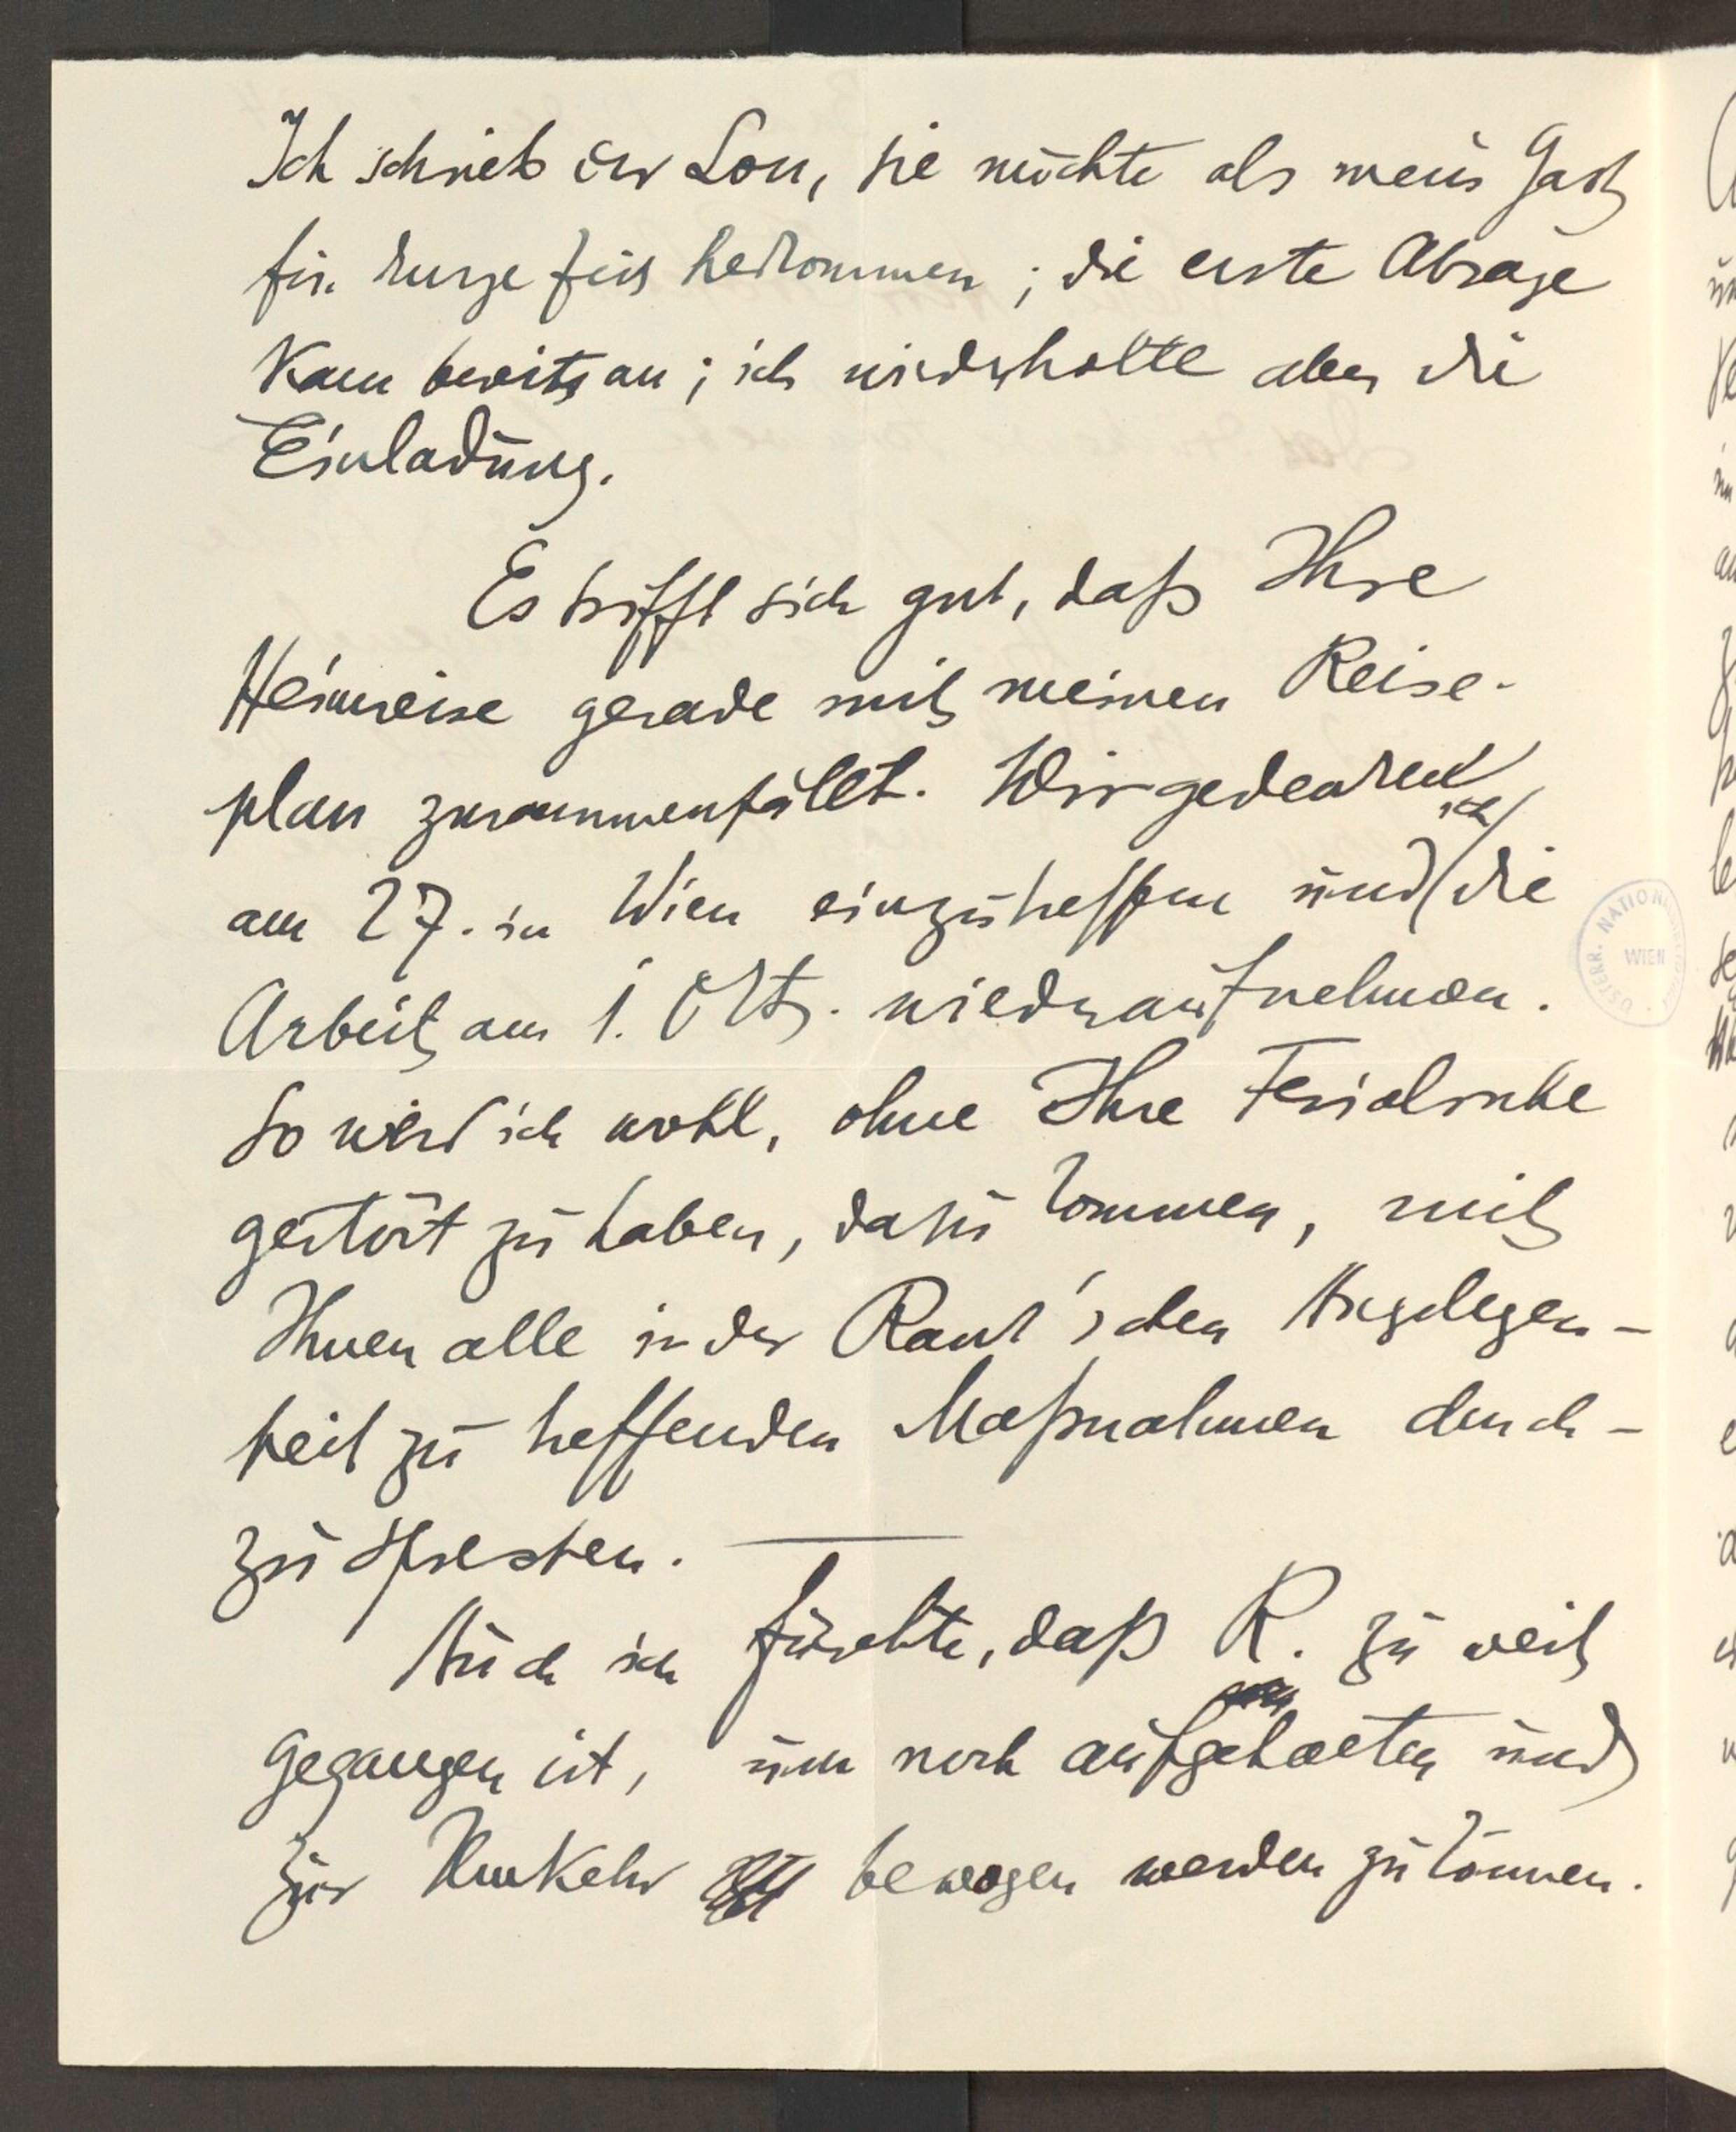 Ich schrieb der Lou, sie möchte als mein Gast
für kurze Zeit herkommen; die erste Absage
kam bereits an; ich wiederholte aber die
Einladung.
Es trifft sich gut, daß Ihre
Heimreise gerade mit meinem Reise-
plan zusammenfällt. Wir gedenken
am 27. in Wien einzutreffen und ich die
Arbeit am 1. Okt. wiederaufnehmen.
So werd ich wohl, ohne Ihre Ferialruhe
gestört zu haben, dazu kommen, mit
Ihnen alle in der Rank'schen Angelegen-
heit zu treffenden Maßnahmen durch-
zusprechen.
Auch ich fürchte, daß R. zu weit
gegangen ist, um noch aufgehalten und
zur Umkehr bewogen werden zu können.
ÖSTERR. NATIONALBIBLIOTHEK WIEN